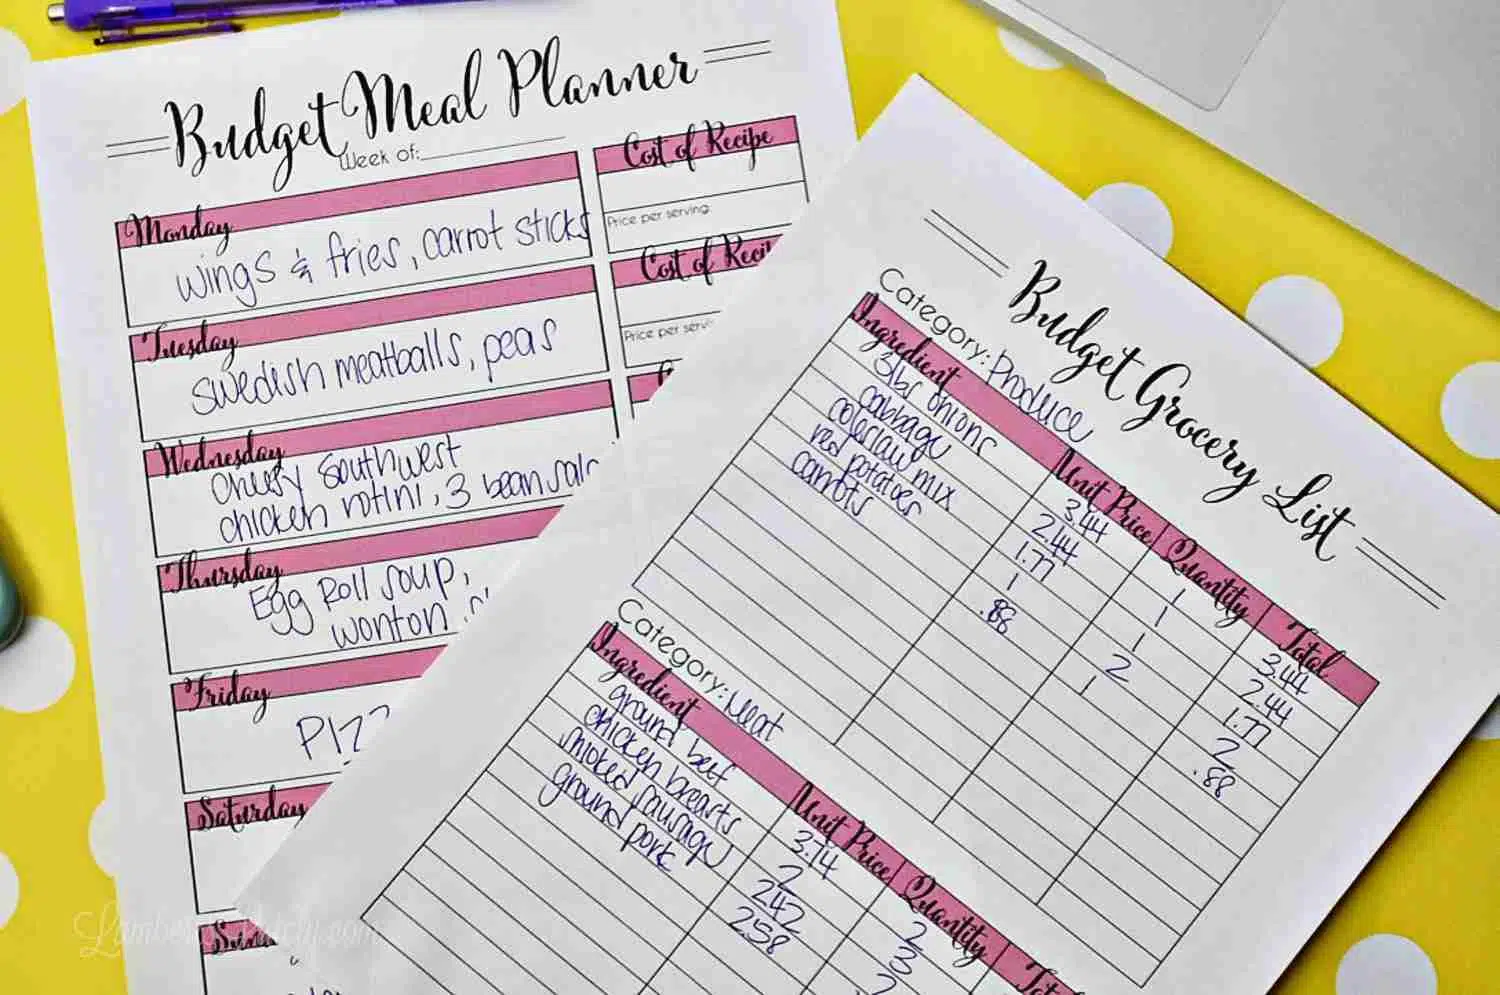 Budget Meal Planner
Week of:
Monday
wings & fries, carrot sticks
Cost of Recipe
Price per serving:
Tuesday
swedish meatballs, peas
Cost of Reci
Price per serv
Wednesday
cheesy southwest
chicken rotini, 3 bean sal
Thursday
Egg Roll soup,
wonton
Friday
PIZZ
Saturday
Sun
Budget Grocery List
Category: Produce
Ingredient Unit Price Quantity Total
3lbs onions 3.44 1 3.44
cabbage 2.44 1 2.44
coleslaw mix 1.77 1 1.77
red potatoes 1 2 2
carrots .88 1 .88
Category: Meat
Ingredient Unit Price Quantity Tot
ground beef 3.74 2
chicken breasts 2 3
smoked sausage 2.42 2
ground pork 2.58